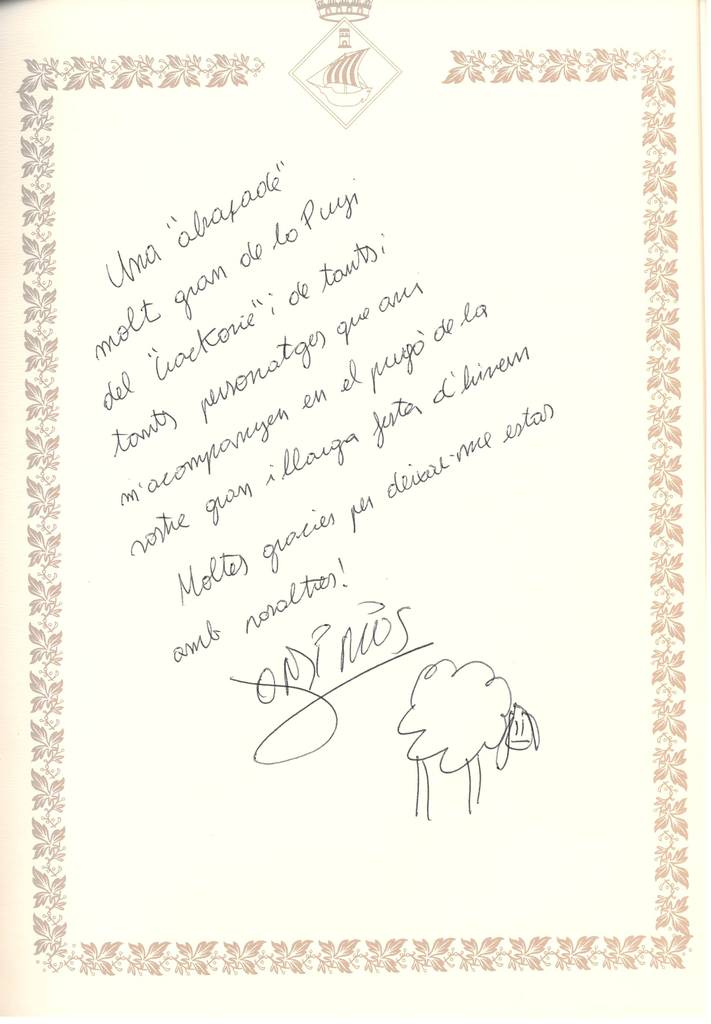 Una "abraçada"
molt gran de la Puyi
del "Crackòvia" i de tants i
tants personatges que avui
m'acompanyen en el pregó de la
vostra gran i llarga festa d'hivern
Moltes gracies per deixar-me estar
amb nosaltres!